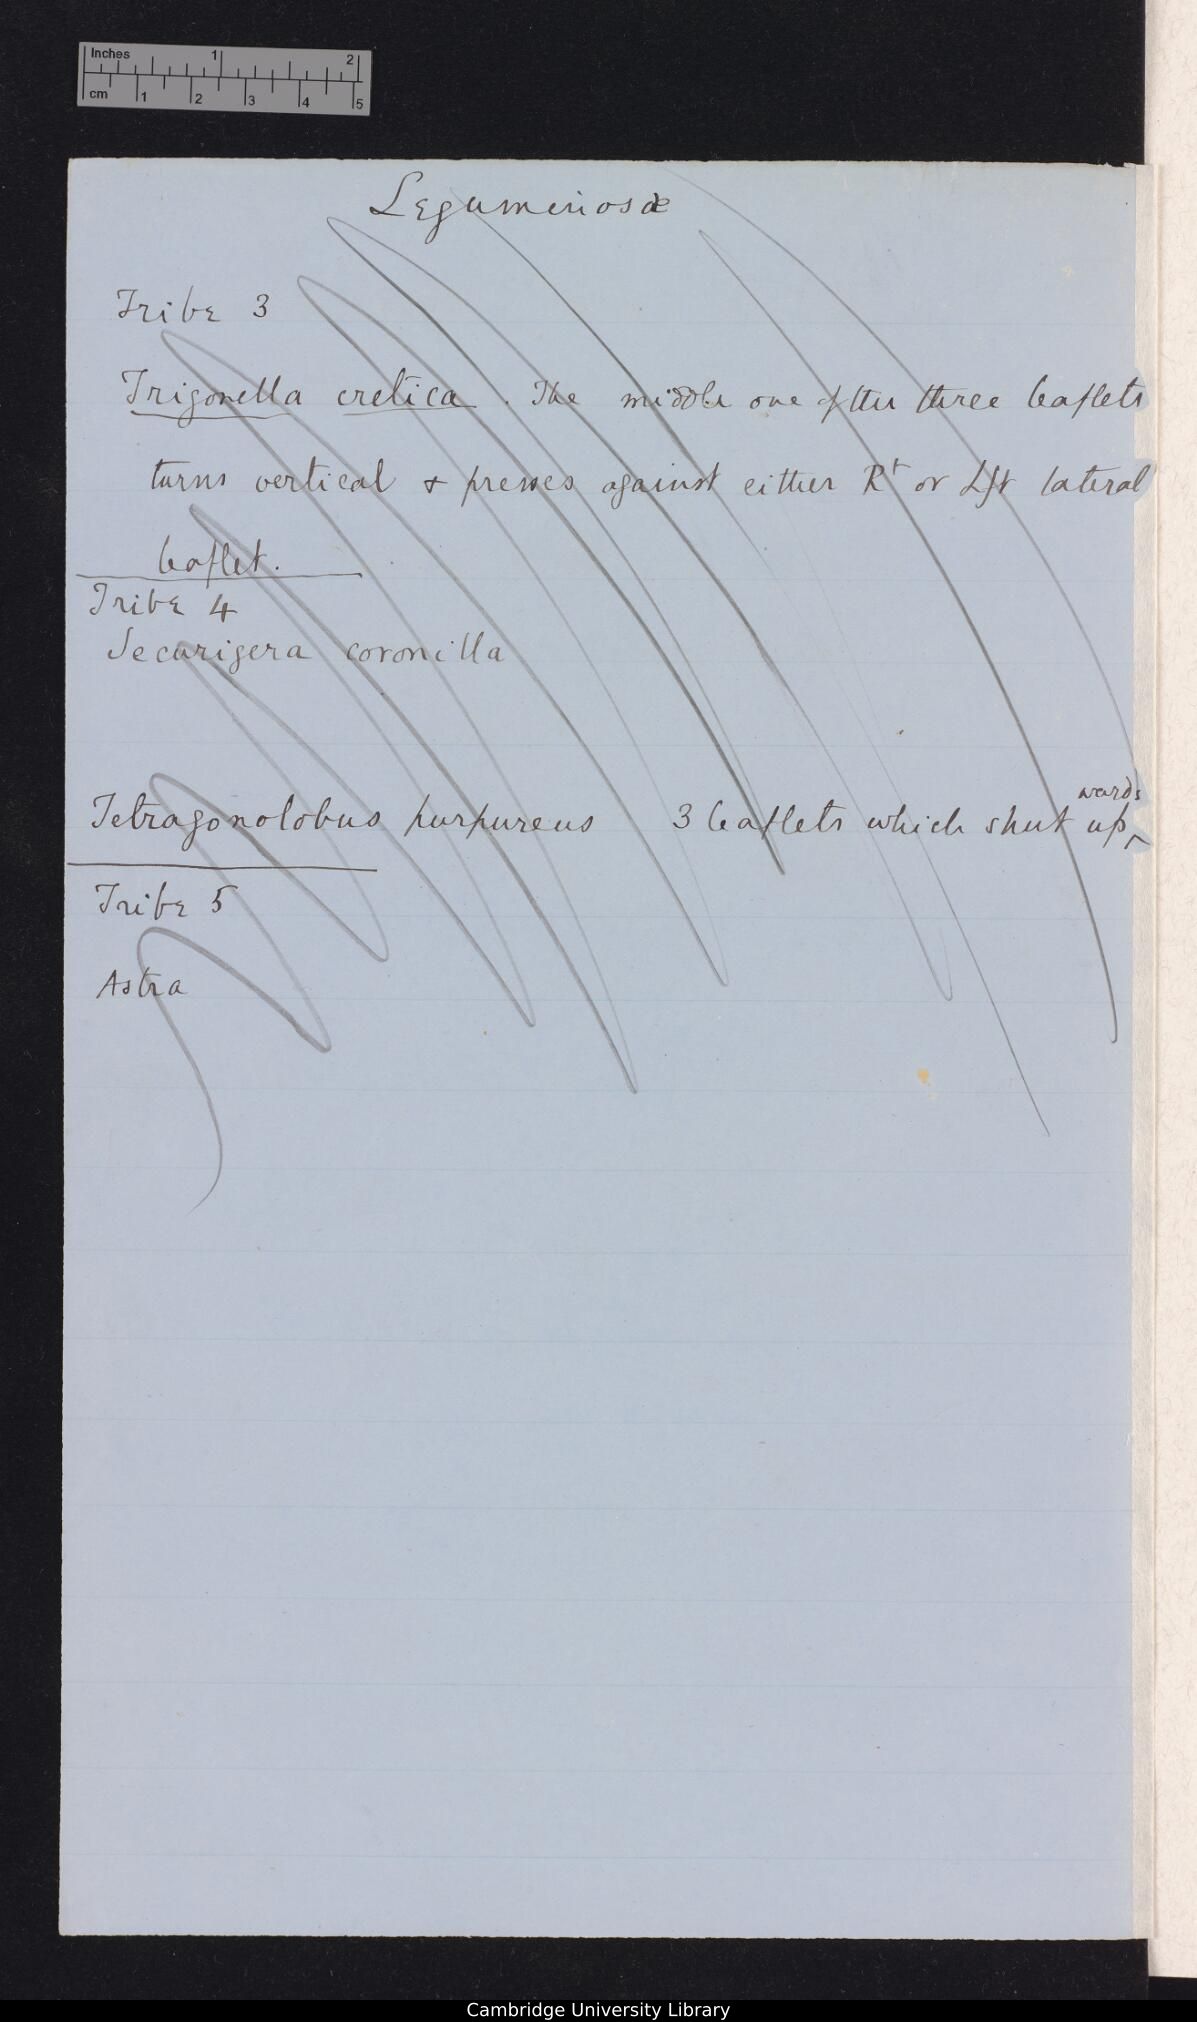 Inches 1 2
cm 1 2 3 4 5
Leguminosæ
Tribe 3
Trigonella cretica. The middle one of the three leaflets
turns vertical & presses against either Rt or Lft lateral
leaflet.
Tribe 4
Securigera coronilla
wards
Tetragonolobus purpureus 3 leaflets which shut up^
Tribe 5
Astra
Cambridge University Library